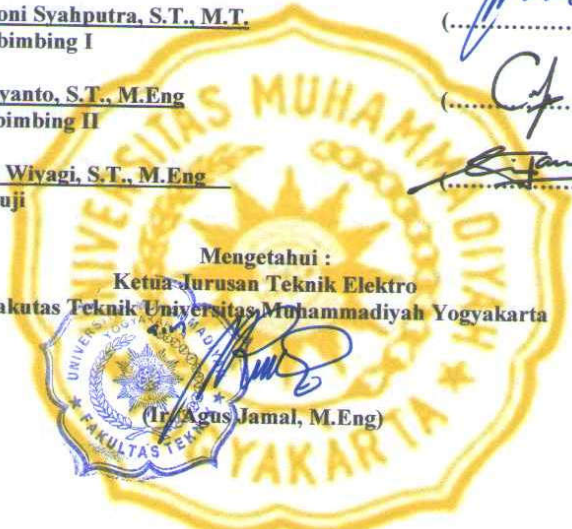 oni Syahputra, S.T., M.T.
bimbing I
(..........
yanto, S.T., M.Eng
bimbing II
(..........
Wiyagi, S.T., M.Eng
uji
(..........
Mengetahui :
Ketua Jurusan Teknik Elektro
akutas Teknik Universitas Muhammadiyah Yogyakarta
(Ir. Agus Jamal, M.Eng)
UNIVERSITAS MUHAMMADIYAH
YOGYAKARTA
FAKULTAS TEKNIK
UNIVERSITAS MUHAMMADIYAH
YAKARTA